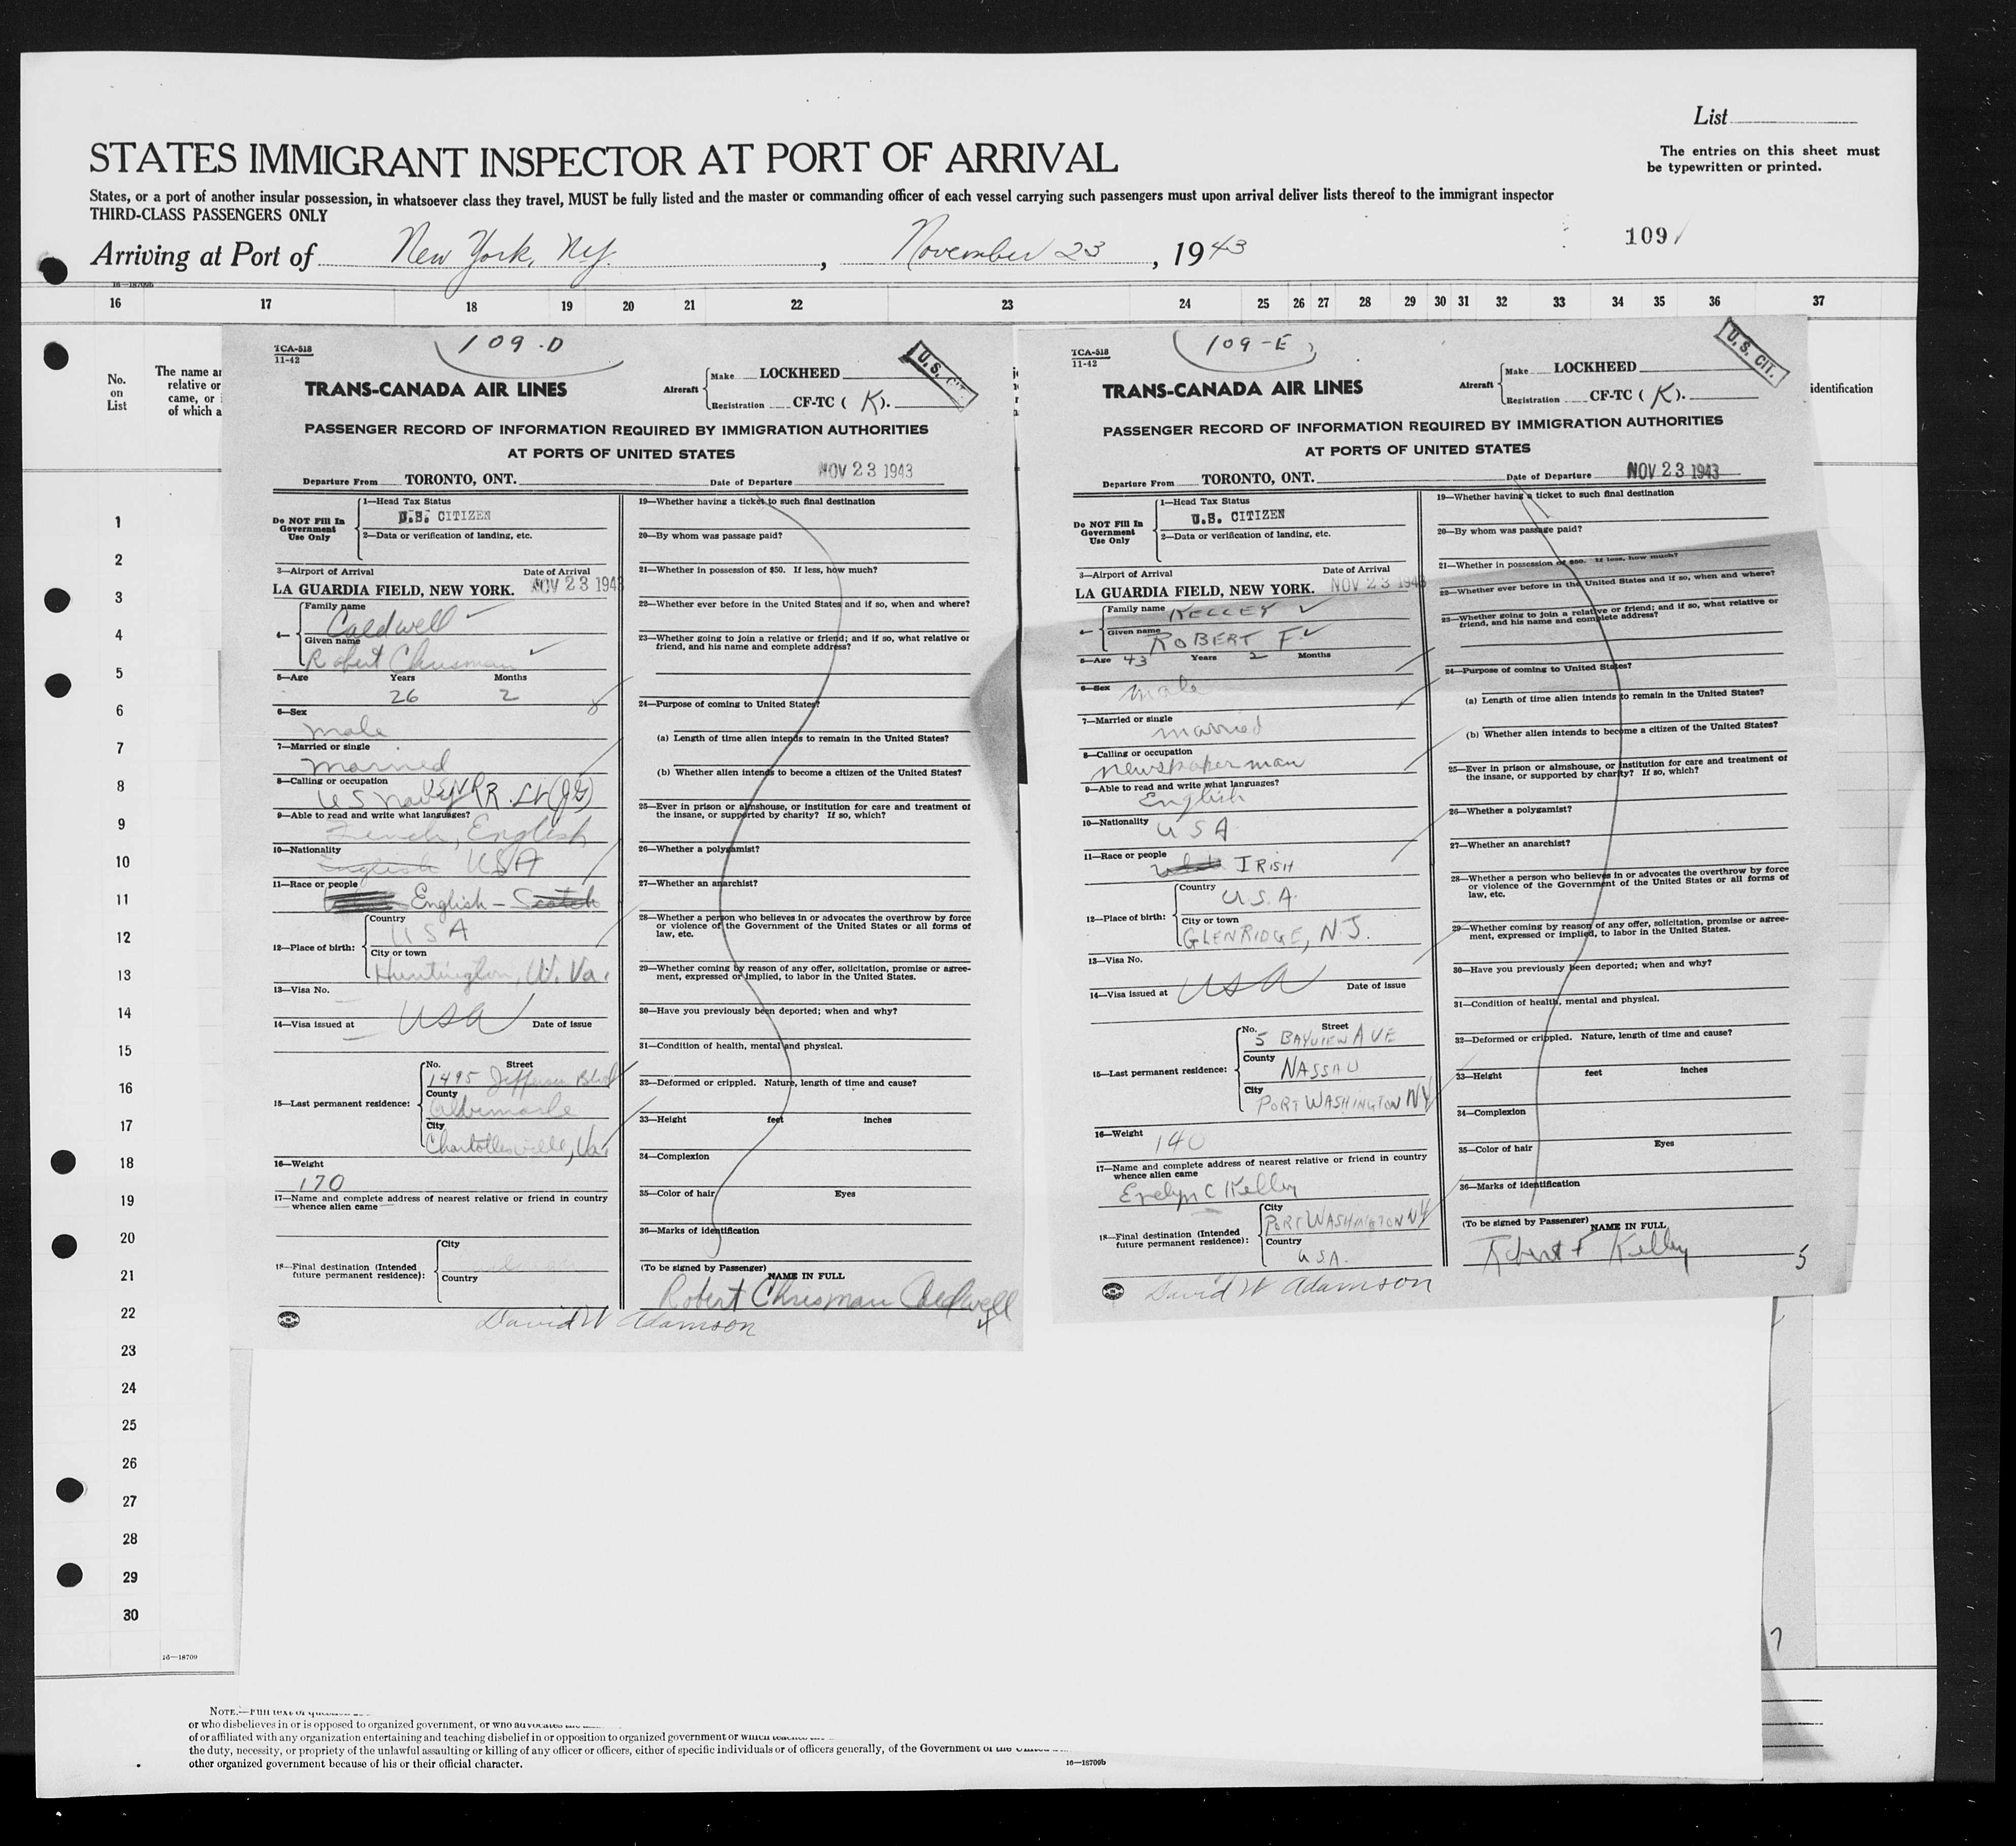 List
The entries on this sheet must
be typewritten or printed.
STATES IMMIGRANT INSPECTOR AT PORT OF ARRIVAL
States, or a port of another insular possession, in whatsoever class they travel, MUST be fully listed and the master or commanding officer of each vessel carrying such passengers must upon arrival deliver lists thereof to the immigrant inspector
THIRD-CLASS PASSENGERS ONLY
Arriving at Port of New York, NY. , November 23 , 1943
109
16—18709b
16 17 18 19 20 21 22 23 24 25 26 27 28 29 30 31 32 33 34 35 36 37
No.
on
List
The name a
relative or
came, or
of which a
identification
1
2
3
4
5
6
7
8
9
10
11
12
13
14
15
16
17
18
19
20
21
22
23
24
25
26
27
28
29
30
16—18709
TCA-518
11-42
109-D
U.S. CIT.
TRANS-CANADA AIR LINES
Aircraft
Make LOCKHEED
Registration CF-TC ( K ).
PASSENGER RECORD OF INFORMATION REQUIRED BY IMMIGRATION AUTHORITIES
AT PORTS OF UNITED STATES
Departure From TORONTO, ONT. Date of Departure NOV 23 1943
Do NOT Fill In
Government
Use Only
1—Head Tax Status
U.S. CITIZEN
2—Data or verification of landing, etc.
3—Airport of Arrival Date of Arrival
LA GUARDIA FIELD, NEW YORK. NOV 23 1943
4—
Family name
Caldwell
Given name
Robert Chrisman
5—Age Years Months
26 2
6—Sex
male
7—Married or single
Married
8—Calling or occupation
US Navy USNR Lt (JG)
9—Able to read and write what languages?
French, English
10—Nationality
English USA
11—Race or people
English - Scotch
12—Place of birth:
Country
USA
City or town
Huntington, W. Va.
13—Visa No.
14—Visa issued at USA Date of issue
15—Last permanent residence:
No. Street
1495 Jefferson Blvd
County
Albemarle
City
Charlottesville, Va.
16—Weight
170
17—Name and complete address of nearest relative or friend in country
whence alien came
18—Final destination (Intended
future permanent residence):
City
Country
19—Whether having a ticket to such final destination
20—By whom was passage paid?
21—Whether in possession of $50. If less, how much?
22—Whether ever before in the United States and if so, when and where?
23—Whether going to join a relative or friend; and if so, what relative or
friend, and his name and complete address?
24—Purpose of coming to United States?
(a) Length of time alien intends to remain in the United States?
(b) Whether alien intends to become a citizen of the United States?
25—Ever in prison or almshouse, or institution for care and treatment of
the insane, or supported by charity? If so, which?
26—Whether a polygamist?
27—Whether an anarchist?
28—Whether a person who believes in or advocates the overthrow by force
or violence of the Government of the United States or all forms of
law, etc.
29—Whether coming by reason of any offer, solicitation, promise or agree-
ment, expressed or implied, to labor in the United States.
30—Have you previously been deported; when and why?
31—Condition of health, mental and physical.
32—Deformed or crippled. Nature, length of time and cause?
33—Height feet inches
34—Complexion
35—Color of hair Eyes
36—Marks of identification
(To be signed by Passenger)
NAME IN FULL
Robert Chrisman Caldwell
4
David W Adamson
TCA-518
11-42
109-E
U.S. CIT.
TRANS-CANADA AIR LINES
Aircraft
Make LOCKHEED
Registration CF-TC ( K ).
PASSENGER RECORD OF INFORMATION REQUIRED BY IMMIGRATION AUTHORITIES
AT PORTS OF UNITED STATES
Departure From TORONTO, ONT. Date of Departure NOV 23 1943
Do NOT Fill In
Government
Use Only
1—Head Tax Status
U.S. CITIZEN
2—Data or verification of landing, etc.
3—Airport of Arrival Date of Arrival
LA GUARDIA FIELD, NEW YORK. NOV 23 194
4—
Family name KELLEY
Given name ROBERT F.
5—Age 43 Years 2 Months
6—Sex male
7—Married or single
married
8—Calling or occupation
newspaperman
9—Able to read and write what languages?
English
10—Nationality USA
11—Race or people
IRISH
12—Place of birth:
Country
U.S.A.
City or town
GLENRIDGE, N.J.
13—Visa No.
14—Visa issued at USA Date of issue
15—Last permanent residence:
No. Street
5 BAYVIEW AVE
County
NASSAU
City
PORT WASHINGTON NY
16—Weight 140
17—Name and complete address of nearest relative or friend in country
whence alien came
Evelyn C Kelley
18—Final destination (Intended
future permanent residence):
City
PORT WASHINGTON NY
Country
U.S.A.
19—Whether having a ticket to such final destination
20—By whom was passage paid?
21—Whether in possession of $50. If less, how much?
22—Whether ever before in the United States and if so, when and where?
23—Whether going to join a relative or friend; and if so, what relative or
friend, and his name and complete address?
24—Purpose of coming to United States?
(a) Length of time alien intends to remain in the United States?
(b) Whether alien intends to become a citizen of the United States?
25—Ever in prison or almshouse, or institution for care and treatment of
the insane, or supported by charity? If so, which?
26—Whether a polygamist?
27—Whether an anarchist?
28—Whether a person who believes in or advocates the overthrow by force
or violence of the Government of the United States or all forms of
law, etc.
29—Whether coming by reason of any offer, solicitation, promise or agree-
ment, expressed or implied, to labor in the United States.
30—Have you previously been deported; when and why?
31—Condition of health, mental and physical.
32—Deformed or crippled. Nature, length of time and cause?
33—Height feet inches
34—Complexion
35—Color of hair Eyes
36—Marks of identification
(To be signed by Passenger)
NAME IN FULL
Robert F Kelley
5
David W Adamson
7
NOTE.—Full text of
or who disbelieves in or is opposed to organized government, or who advocates
of or affiliated with any organization entertaining and teaching disbelief in or opposition to organized government or which
the duty, necessity, or propriety of the unlawful assaulting or killing of any officer or officers, either of specific individuals or of officers generally, of the Government of the
other organized government because of his or their official character.
16—18709b